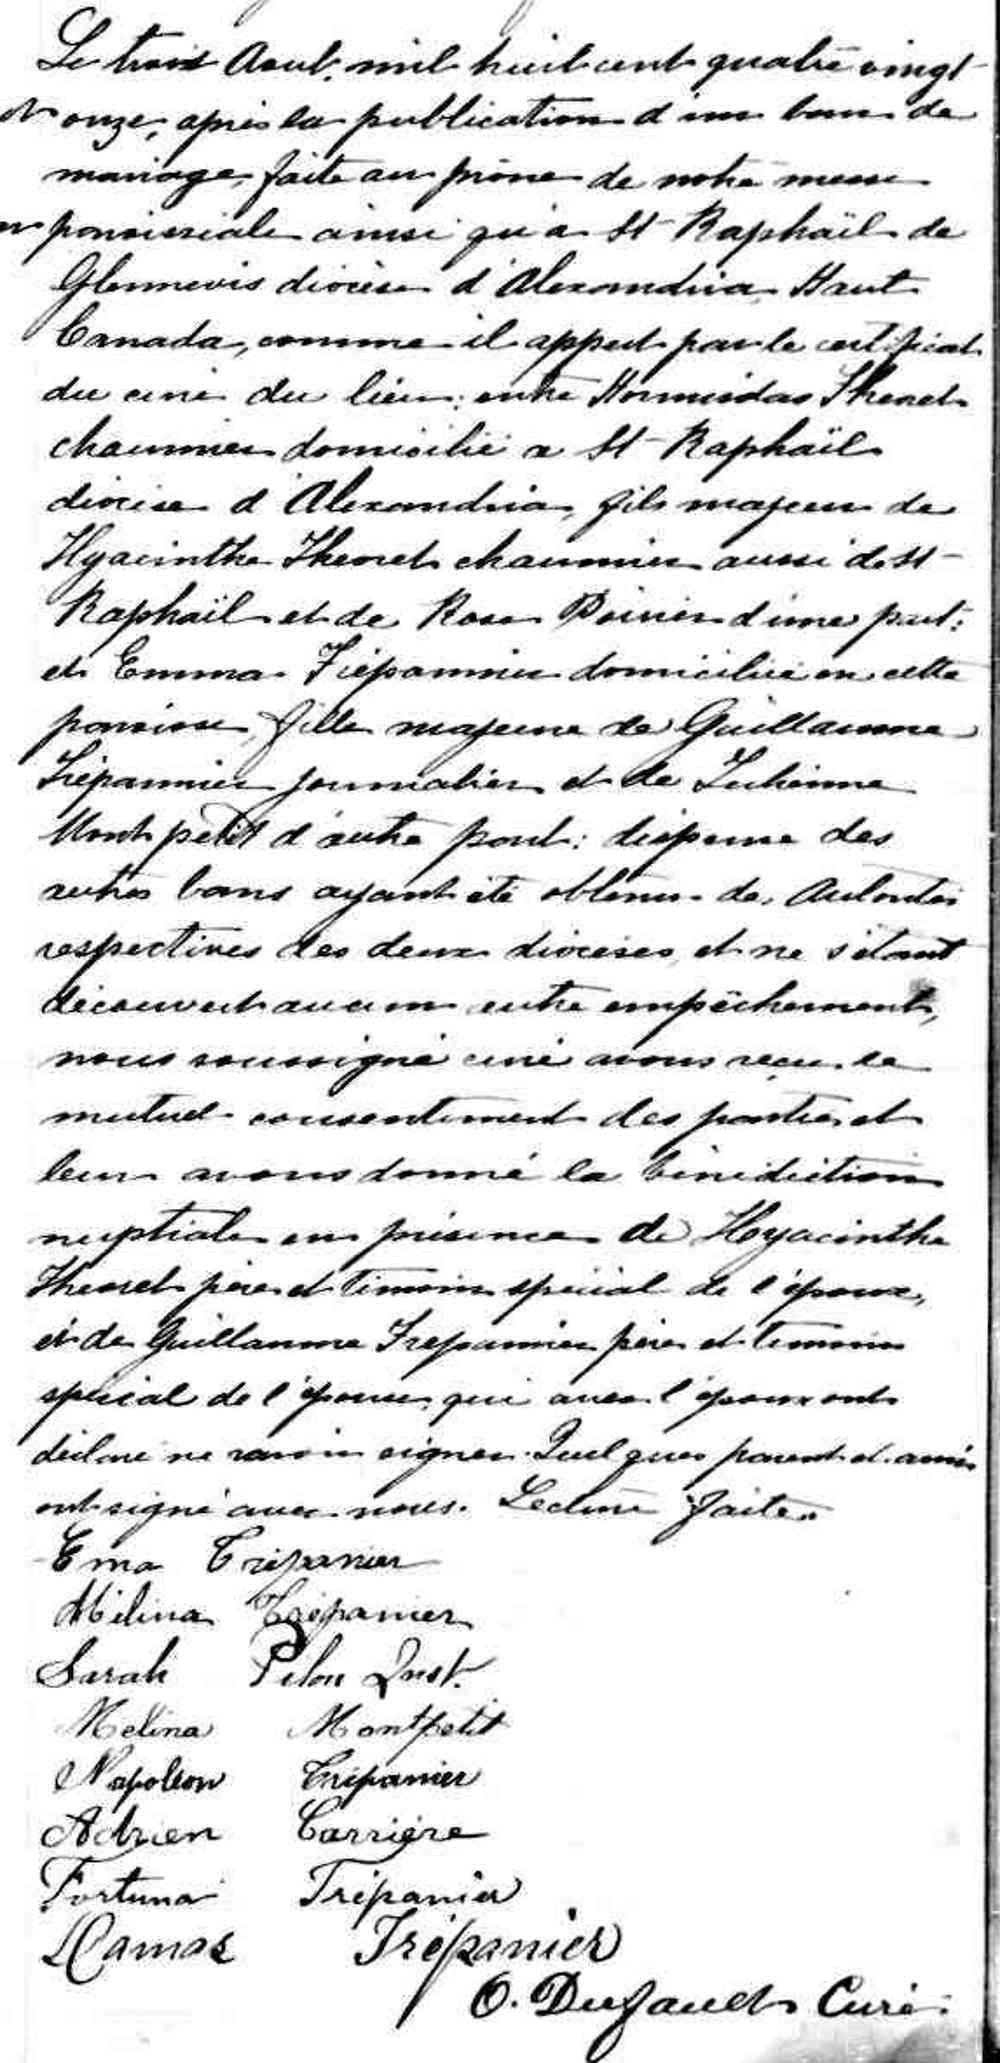 Le trois Aout, mil huit cent quatre vingt-
onze, après la publication d'un ban de
mariage, faite au prône de notre messe
paroissiale ainsi qu'a St-Raphaël de
Glennevis diocèse d'Alexandria Haut
Canada, comme il appert par le certificat
du curé du lieu: entre Hormisdas Theoret
domicilié a St-Raphaël
diocèse d'Alexandria, fils majeur de
Hyacinthe Theoret aussi de St-
Raphaël et de Rose Poirier d'une part:
et Emma Trépannier domiciliée en cette
paroisse, fille majeure de Guillaume
Trépannier journalier et de
Montpetit d'autre part: dispense des
autres bans ayant été obtenue des Autorités
respectives des deux diocèses, et ne s'étant
découvert aucun autre empêchement,
nous soussigné curé avons reçu le
mutuel consentement des parties et
leur avons donné la bénédiction
nuptiale en présence de Hyacinthe
Theoret père et témoin spécial de l'époux,
et de Guillaume Trepannier père et témoin
spécial de l'épouse, qui avec l'époux ont
déclaré ne savoir signer. Quelques parents et amis
ont signé avec nous. Lecture faite.
Ema Trépanier
Mélina Trépanier
Sarah Pilon
Melina Montpetit
Napoleon Trépanier
Adrien Carrière
Fortuna Trépanier
Damas Trépanier
O. Dufault Curé.